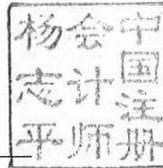 中国注册
会计师
杨志平